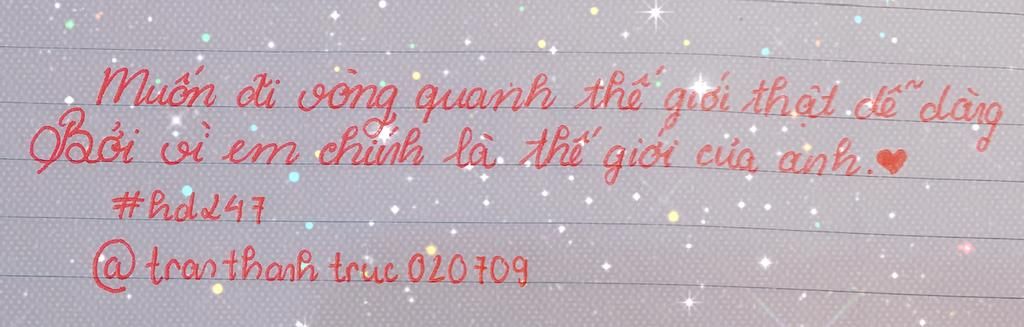 Muốn đi vòng quanh thế giới thật dễ dàng
Bởi vì em chính là thế giới của anh.❤
#hd247
@tranthanhtruc020709